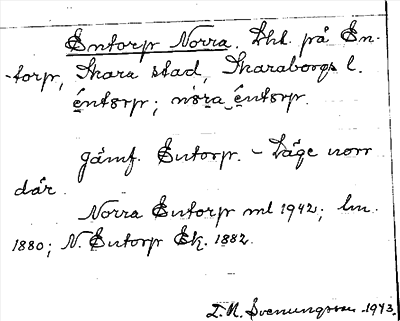 Entorp Norra. Lht. på En-
-torp, Skara stad, Skaraborgs l.
éntorp; nóra éntorp.
Jämf. Entorp. – Läge norr
där.
Norra Entorp ml 1942; lm.
1880; N. Entorp Ek. 1882.
Svenungsson. 1943.